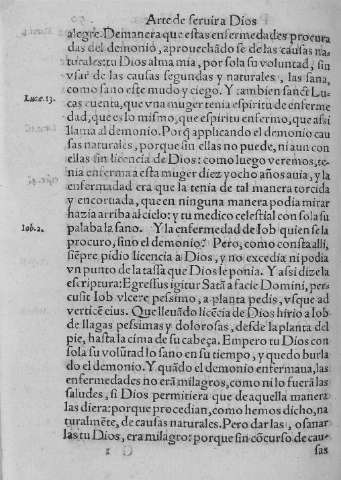 Arte de seruir a Dios
alegre. De manera que estas enfermedades procura
das del demonio, aprouechãdo se de las causas na-
turales: tu Dios alma mia, por sola su voluntad, sin
vsar de las causas segundas y naturales, las sana,
como sano este mudo y ciego. Y tambien sanct Lu
Lucæ. 13. cas cuenta, que vna muger tenia espiritu de enferme
dad, que es lo mismo, que espiritu enfermo, que assi
llama al demonio. Porq̃ applicando el demonio cau
sas naturales, porque sin ellas no puede, ni aun con
ellas sin licencia de Dios: como luego veremos, te-
nia enferma a esta muger diez y ocho años auia, y la
enfermedad era que la tenia de tal manera torcida
y encoruada, que en ninguna manera podia mirar
hazia arriba al cielo: y tu medico celestial con sola su
Iob. 2. palabra la sano. Y la enfermedad de Iob quien se la
procuro, sino el demonio? Pero, como consta alli,
siẽpre pidio licencia a Dios, y no excedia ni podia
vn punto de la tassa que Dios le ponia. Y assi dize la
escriptura: Egressus igitur Satã a facie Domini, per-
cusit Iob vlcere pessimo, a planta pedis, vsque ad
verticẽ eius. Que lleuãdo licẽcia de Dios hirio a Iob
de llagas pessimas y dolorosas, desde la planta del
pie, hasta la cima de su cabeça. Empero tu Dios con
sola su volũtad lo sano en su tiempo, y quedo burla
do el demonio. Y quãdo el demonio enfermaua, las
enfermedades no erã milagros, como ni lo fuerã las
saludes, si Dios permitiera que de aquella manera
las diera: porque procedian, como hemos dicho, na
turalmẽte, de causas naturales. Pero dar las, o sanar
las tu Dios, era milagro: porque sin cõcurso de cau-
G sas